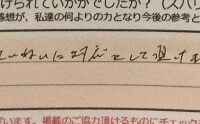 けられていかがでしたか?（スバリ
感想が、私達の何よりの力となり今後の参考と
ていねいに対応して頂けま
ざいます。掲載のご協力頂けるものにチェック